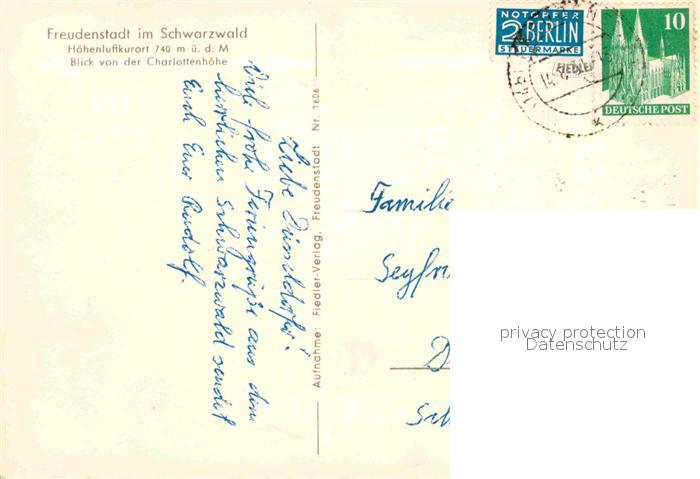 Freudenstadt im Schwarzwald
Höhenluftkurort 740 m ü. d. M
Blick von der Charlottenhöhe
Liebe Düsseldorfer!
Viele frohe Feriengrüße aus dem
herrlichen Schwarzwald sendet
Euch Euer Rudolf.
Aufnahme: Fiedler-Verlag, Freudenstadt Nr. 1606
NOTOPFER
2 BERLIN
STEUERMARKE
10
DEUTSCHE POST
Familie
Seyfr
D
Sch
privacy protection
Datenschutz